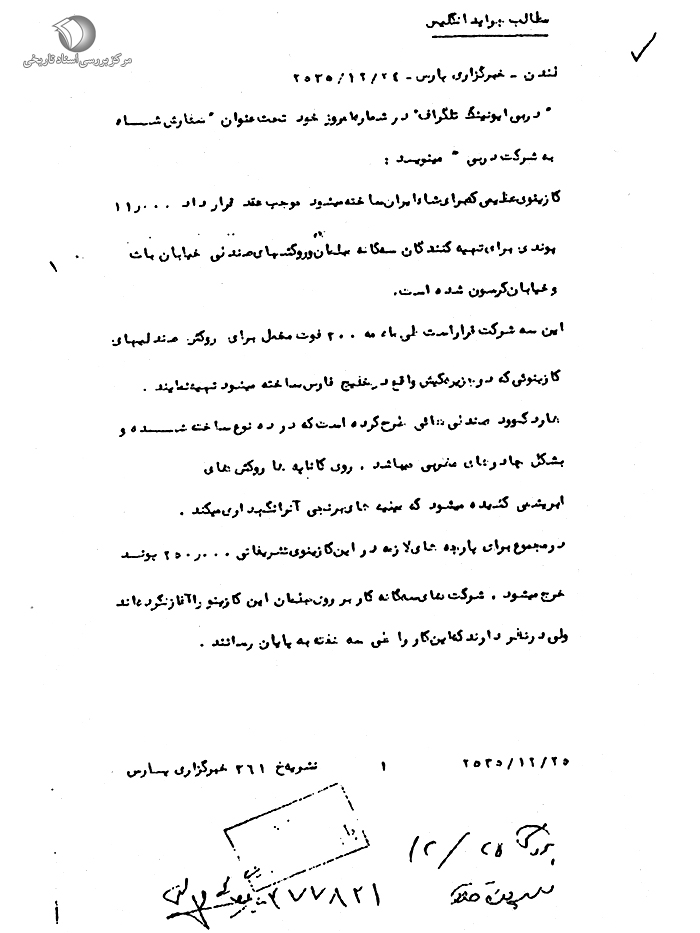 مرکز بررسی اسناد تاریخی
مطالب جراید انگلیس
لندن - خبرگزاری پارس - ۲۵۳۵/۱۲/۲۴
" دربی ایونینگ تلگراف" در شماره امروز خود تحت عنوان " سفارش شاه
به شرکت دربی " مینویسد :
کازینوی عظیمی که برای شاه ایران ساخته میشود موجب عقد قرار داد ۱۱٫۰۰۰
پوندی برای تهیه کنندگان سه گانه مبلمان و روکشهای صندلی خیابان بات
و خیابان کرسون شده است.
این سه شرکت قرار است طی ماه مه ۲۰۰ فوت مخمل برای روکش صندلیهای
کازینوئی که در جزیره کیش واقع در خلیج فارس ساخته میشود تهیه نمایند .
صندلی طرح کرده است که در ده نوع ساخته شده و
بشکل چادرهای میباشد . روی کاناپه ها روکش های
ابریشمی کشیده میشود که های برنجی آنرا نگهداری میکند .
در مجموع برای پارچه های لازمه در این کازینوی تشریفاتی ۲۵۰٫۰۰۰ پوند
خرج میشود . شرکت های سه گانه کار بر روی مبلمان این کازینو را آغاز نکرده اند
ولی در نظر دارند که این کار را طی سه هفته به پایان رسانند .
۲۵۳۵/۱۲/۲۵ ۱ نشریه خ ۳۶۱ خبرگزاری پارس
۱۲/۲۵
۳۷۷۸۲۱